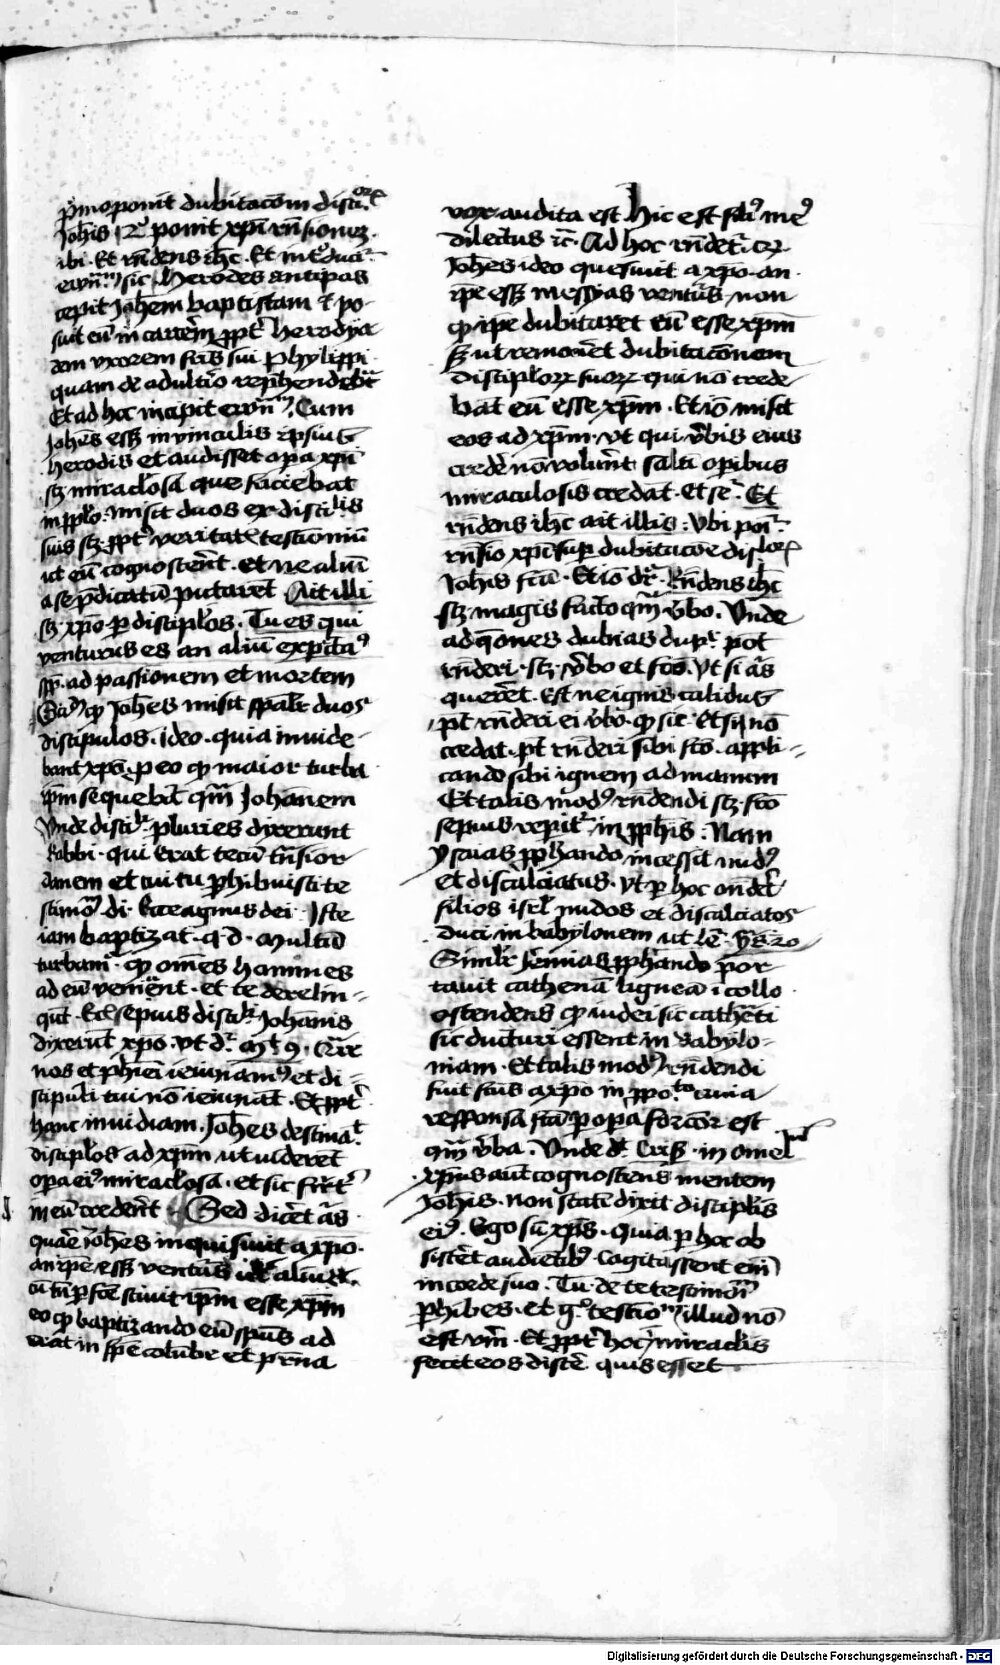 p̄mo ponit dubitacōm disci.orū
Joh̄is / 2º ponit xp̄i rn̄sionez
ibi · Et rn̄dens ih̄c · Et intduc̄r
ewn̄m sic · Herodes antipas
cepit Joh̄em baptistam et po-
suit eū in carcēm ꝓptʳ herodya
dem vxorem fr̄is sui phylippi
quam de adultio rep̄hendebat
Et ad hoc incipit ewn̄m · Cum
Joh̄es esset in vinculis ipsius
herodis et audisset oꝑa xp̄i
sꝫ miraclosa que faciebat
in pplo · misit duos ex discilis
suis sꝫ ꝓptʳ veritatē testimoniū
ut eū cognoscēnt · et ne aliū
a se p̄dicatū putarēt Ait illi
sꝫ xp̄o ꝑ disciplos · Tu es qui
venturus es an aliū expctaꝰ
sꝫ · ad passionem et mortem
ꝙ Joh̄es misit spāl̄r duos
discipulos · ideo · quia inuide-
bant xp̄o · ꝑ eo ꝙ maior turba
ip̄m sequebāt qm̄ Johānem
Vnde disci.li pluries dixerunt
Rabbi · qui erat tecū tn̄s ior
danem et cui tu ꝑhibuisti te
stimōm · di · Ecce agnus dei · Iste
iam baptizat · q · d · multū
turbamʳ · ꝙ om̄es homines
ad eū veniēnt · et te derelin-
qūt · Ecī sepius disci.li Johānis
dixerūt xp̄o · vt dʳ mt 9 · Qr̄e
nos et ph̄ei ieiunamꝰ et di-
scipuli tui nō ieiunāt · Et ꝓptʳ
hanc inuidiam · Joh̄es destinat
disciplos ad xp̄m ut uiderēt
oꝑa eiꝰ miraclosa · et sic
in eū crederēt Sed dicēt as
quāe ioh̄es inquisiuit a xp̄o ·
an ip̄e esset ventūs uel aliū
cū tn̄ ꝑfc̄e sciuit ip̄m esse xp̄m
eo ꝙ baptizando eū spūs ad
uēat in spēe columbe et pr̄na
vox audita est Hic est filiꝰ meꝰ
dilectus ic̄ · Ad hoc rn̄detʳ
Joh̄es ideo quesiuit a xp̄o · an
ip̄e esset messyas ventūs · non
ꝙ ip̄e dubitaret eū esse xp̄m
sꝫ ut remouēt dubitacōnem
disciploꝝ suoꝝ qui nō crede
bāt eū esse xp̄m · Et iō misit
eos ad xp̄m · vt qui v̄bis eius
credē nō voluēnt saltī opibus
miraculosis credāt · Et seʳ · Et
rn̄dens ih̄c ait illis · Vbi ponʳ
rn̄sio xp̄i suꝑ dubitacōe disloꝝ
Joh̄is fcā · Et iō dʳ · Rn̄dens ih̄c
sꝫ magis facto qm̄ v̄bo · Vnde
ad q̄ones dubias dupʳ pōt
rn̄deri · sꝫ v̄bo et fcō · Vt si as
querēt · Est ne ignis calidus
pt̄ rn̄deri ei v̄bo · ꝙ sic · Et si nō
credat · pt̄ rn̄deri sibi fcō · appli-
cando sibi ignem ad manum
Et talis modꝰ rn̄dendi sꝫ fcō
sepius repitʳ in ꝓph̄is · Nam
ysaias ꝓph̄ando incessit nudꝰ
et discalciatus · vt ꝑ hoc on̄dēt
filios isrl̄ nudos et discalciatos
duci in babylonem ut hēʳ · ys 20
Simil̄r ieremias ꝓph̄ando por
tauit cathenā ligneā ī collo
ostendens ꝙ iudei sic cathēti
sic ducturi essent in babylo-
niam · Et talis modꝰ rn̄dendi
fuit fcūs a xp̄o in ꝓposito · cuia
responsā fcā ꝑ oꝑa forcior est
qm̄ v̄ba · Vnde dʳ Cris · in omel
xp̄us aut̄ cognoscens mentem
Johis · non statī dixit disciplis
eiꝰ · Ego sū xp̄us · Quia ꝑ hoc ob
sistēt audientibꝰ · Cogitassent em̄
in corde suo · Tu · de te testimoīm
ꝑhibes · et gº testioīm illud nō
est vm̄ · Et ꝓptʳ hoc miraclis
fecit eos discē quis esset
Digitalisierung gefördert durch die Deutsche Forschungsgemeinschaft - DFG